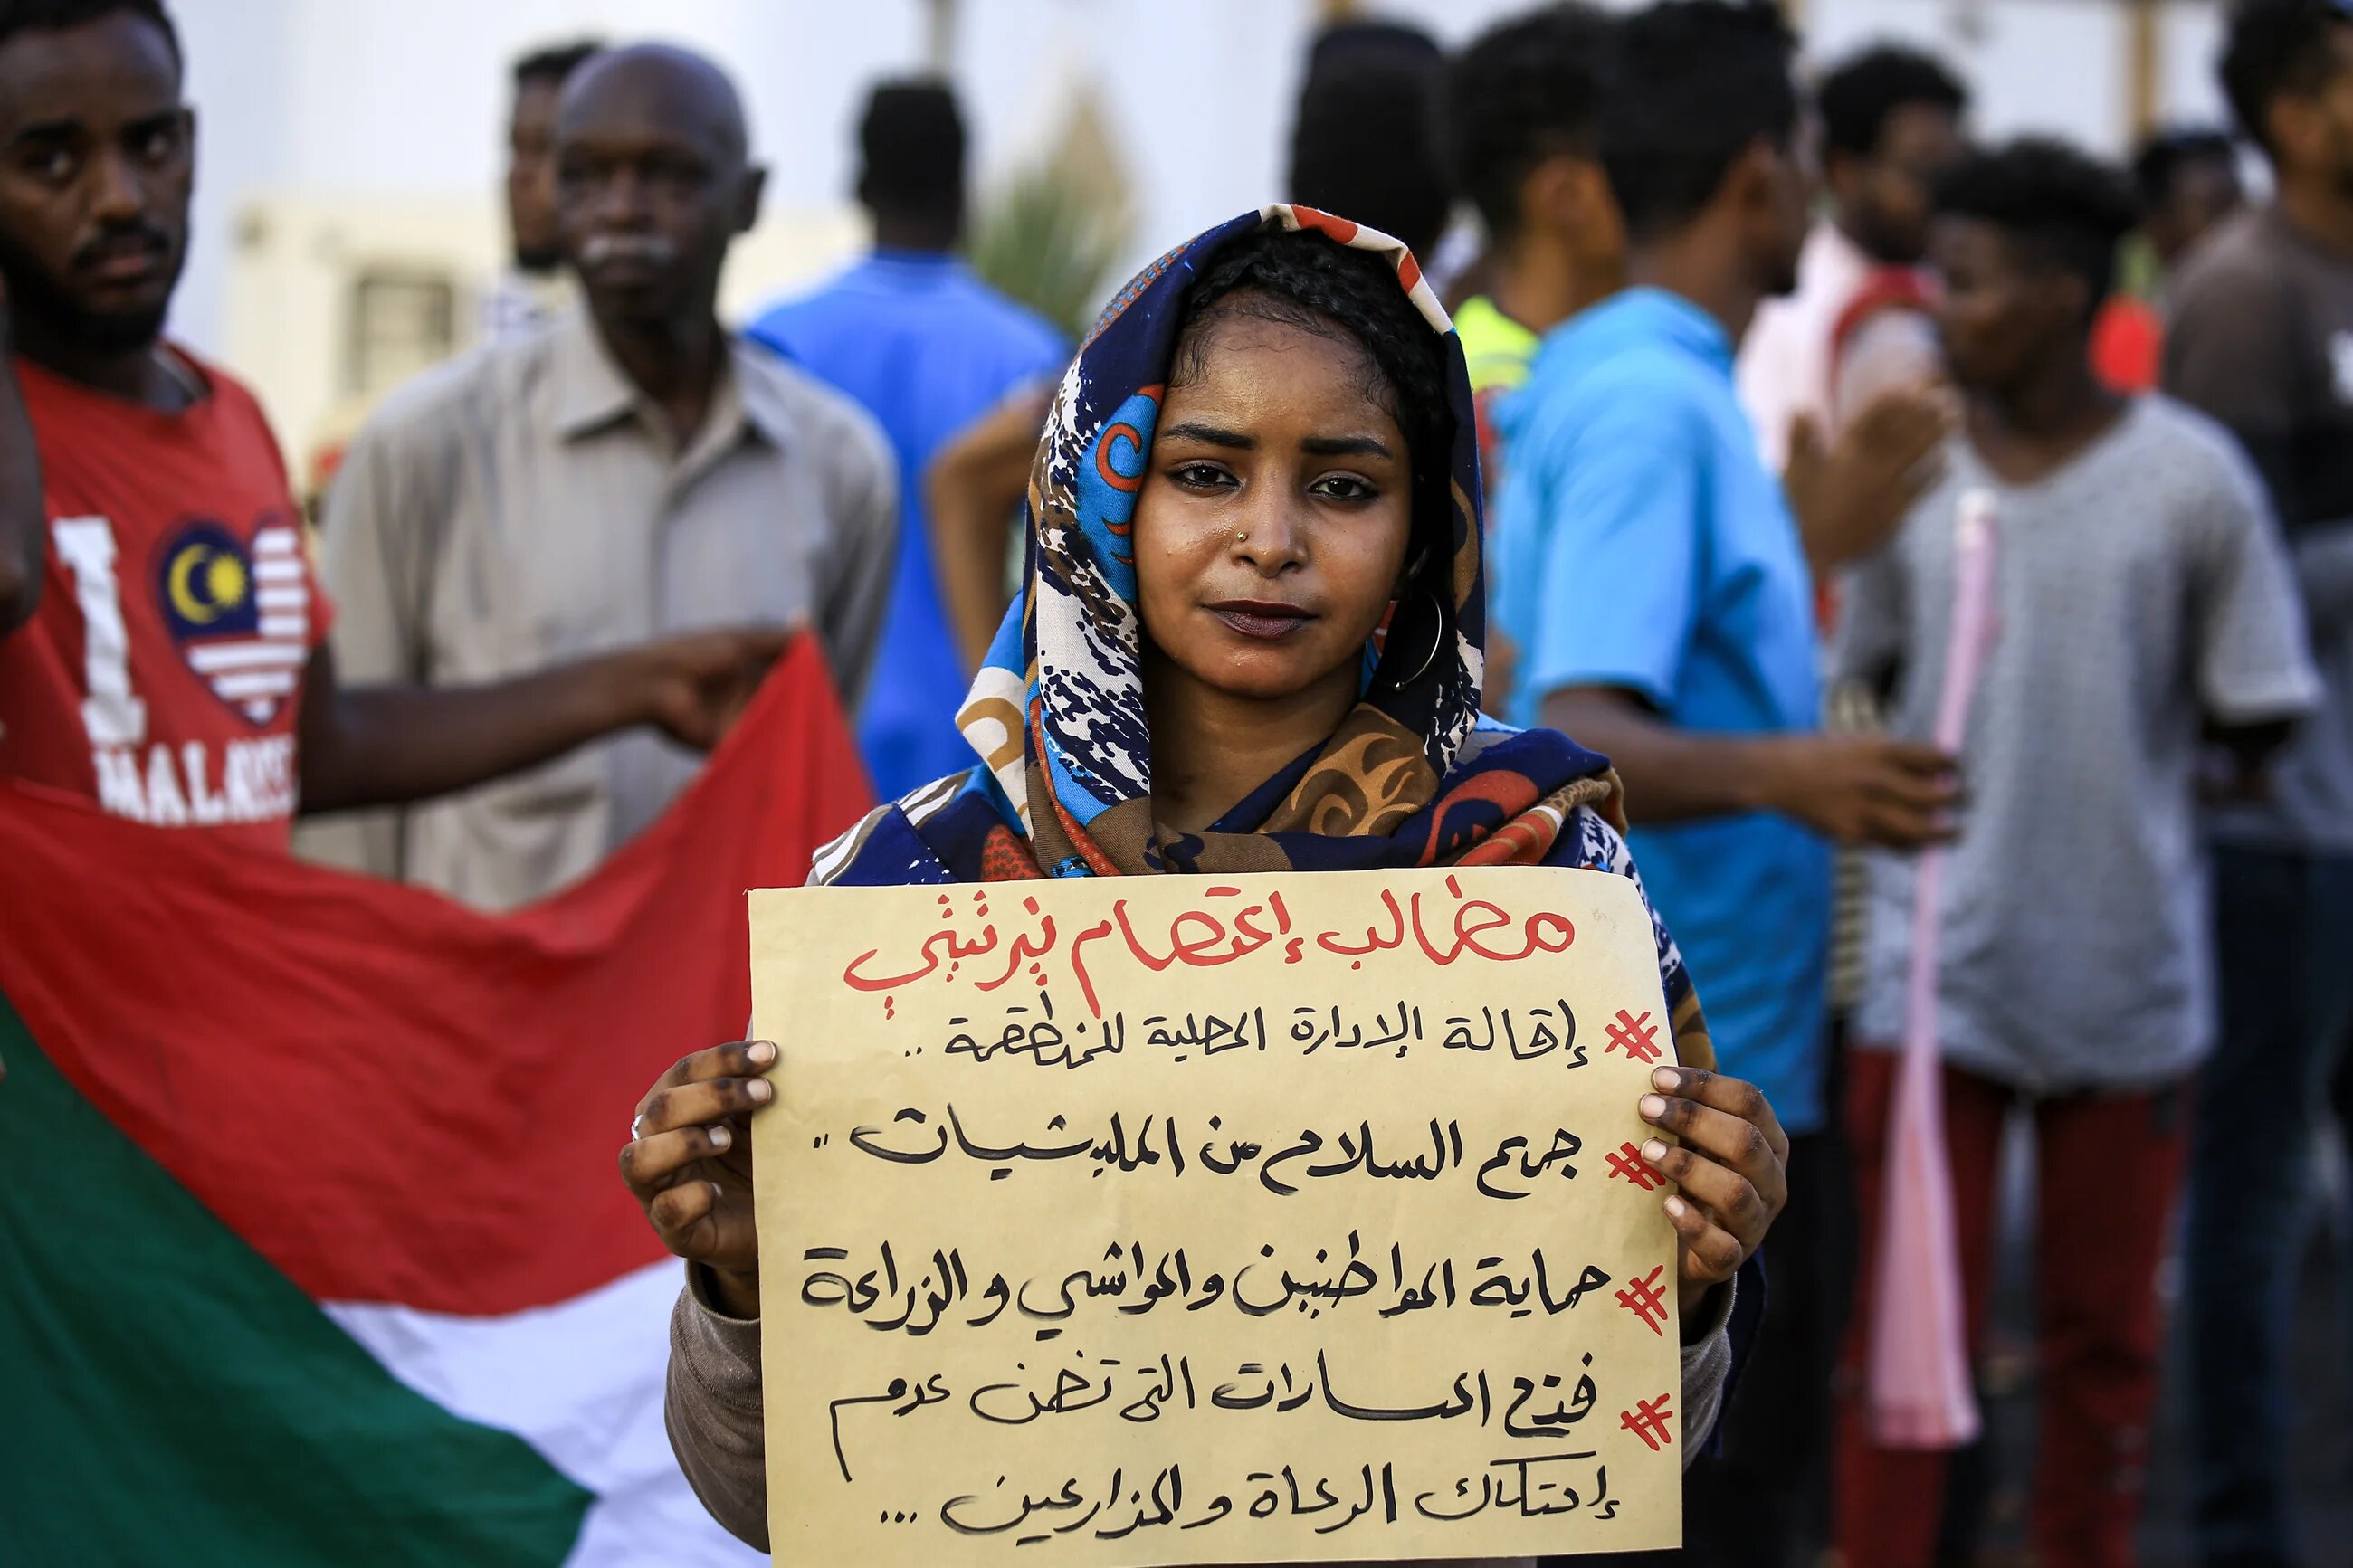 I
MALAYSIA
مطالب إعتصام نيرتيتي
# إقالة الإدارة المحلية للمنطقة ..
# جمع السلاح من المليشيات ..
# حماية المواطنين والمواشي و الزراعة
# فتح المسارات التي تضمن عدم
إحتكاك الرعاة و المزارعين ...